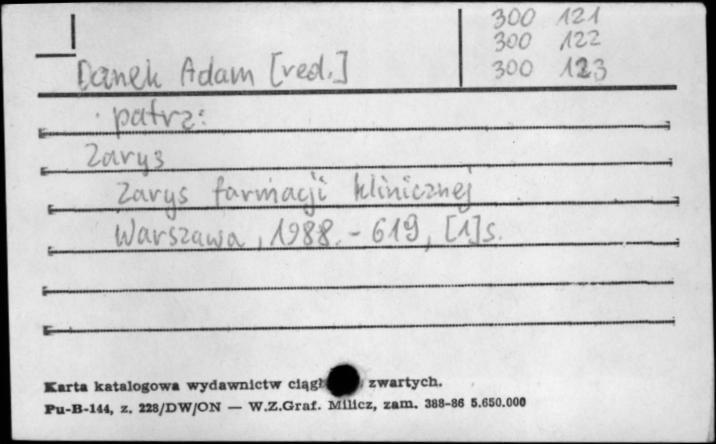 300 121
300 122
300 123
Danek Adam [red.]
patrz:
Zarys
Zarys farmacji klinicznej
Warszawa, 1988. - 619, [1]s.
Karta katalogowa wydawnictw zwartych.
Pu-B-144, z. 228/DW/ON — W.Z.Graf. Milicz, zam. 388-86 5.650.000